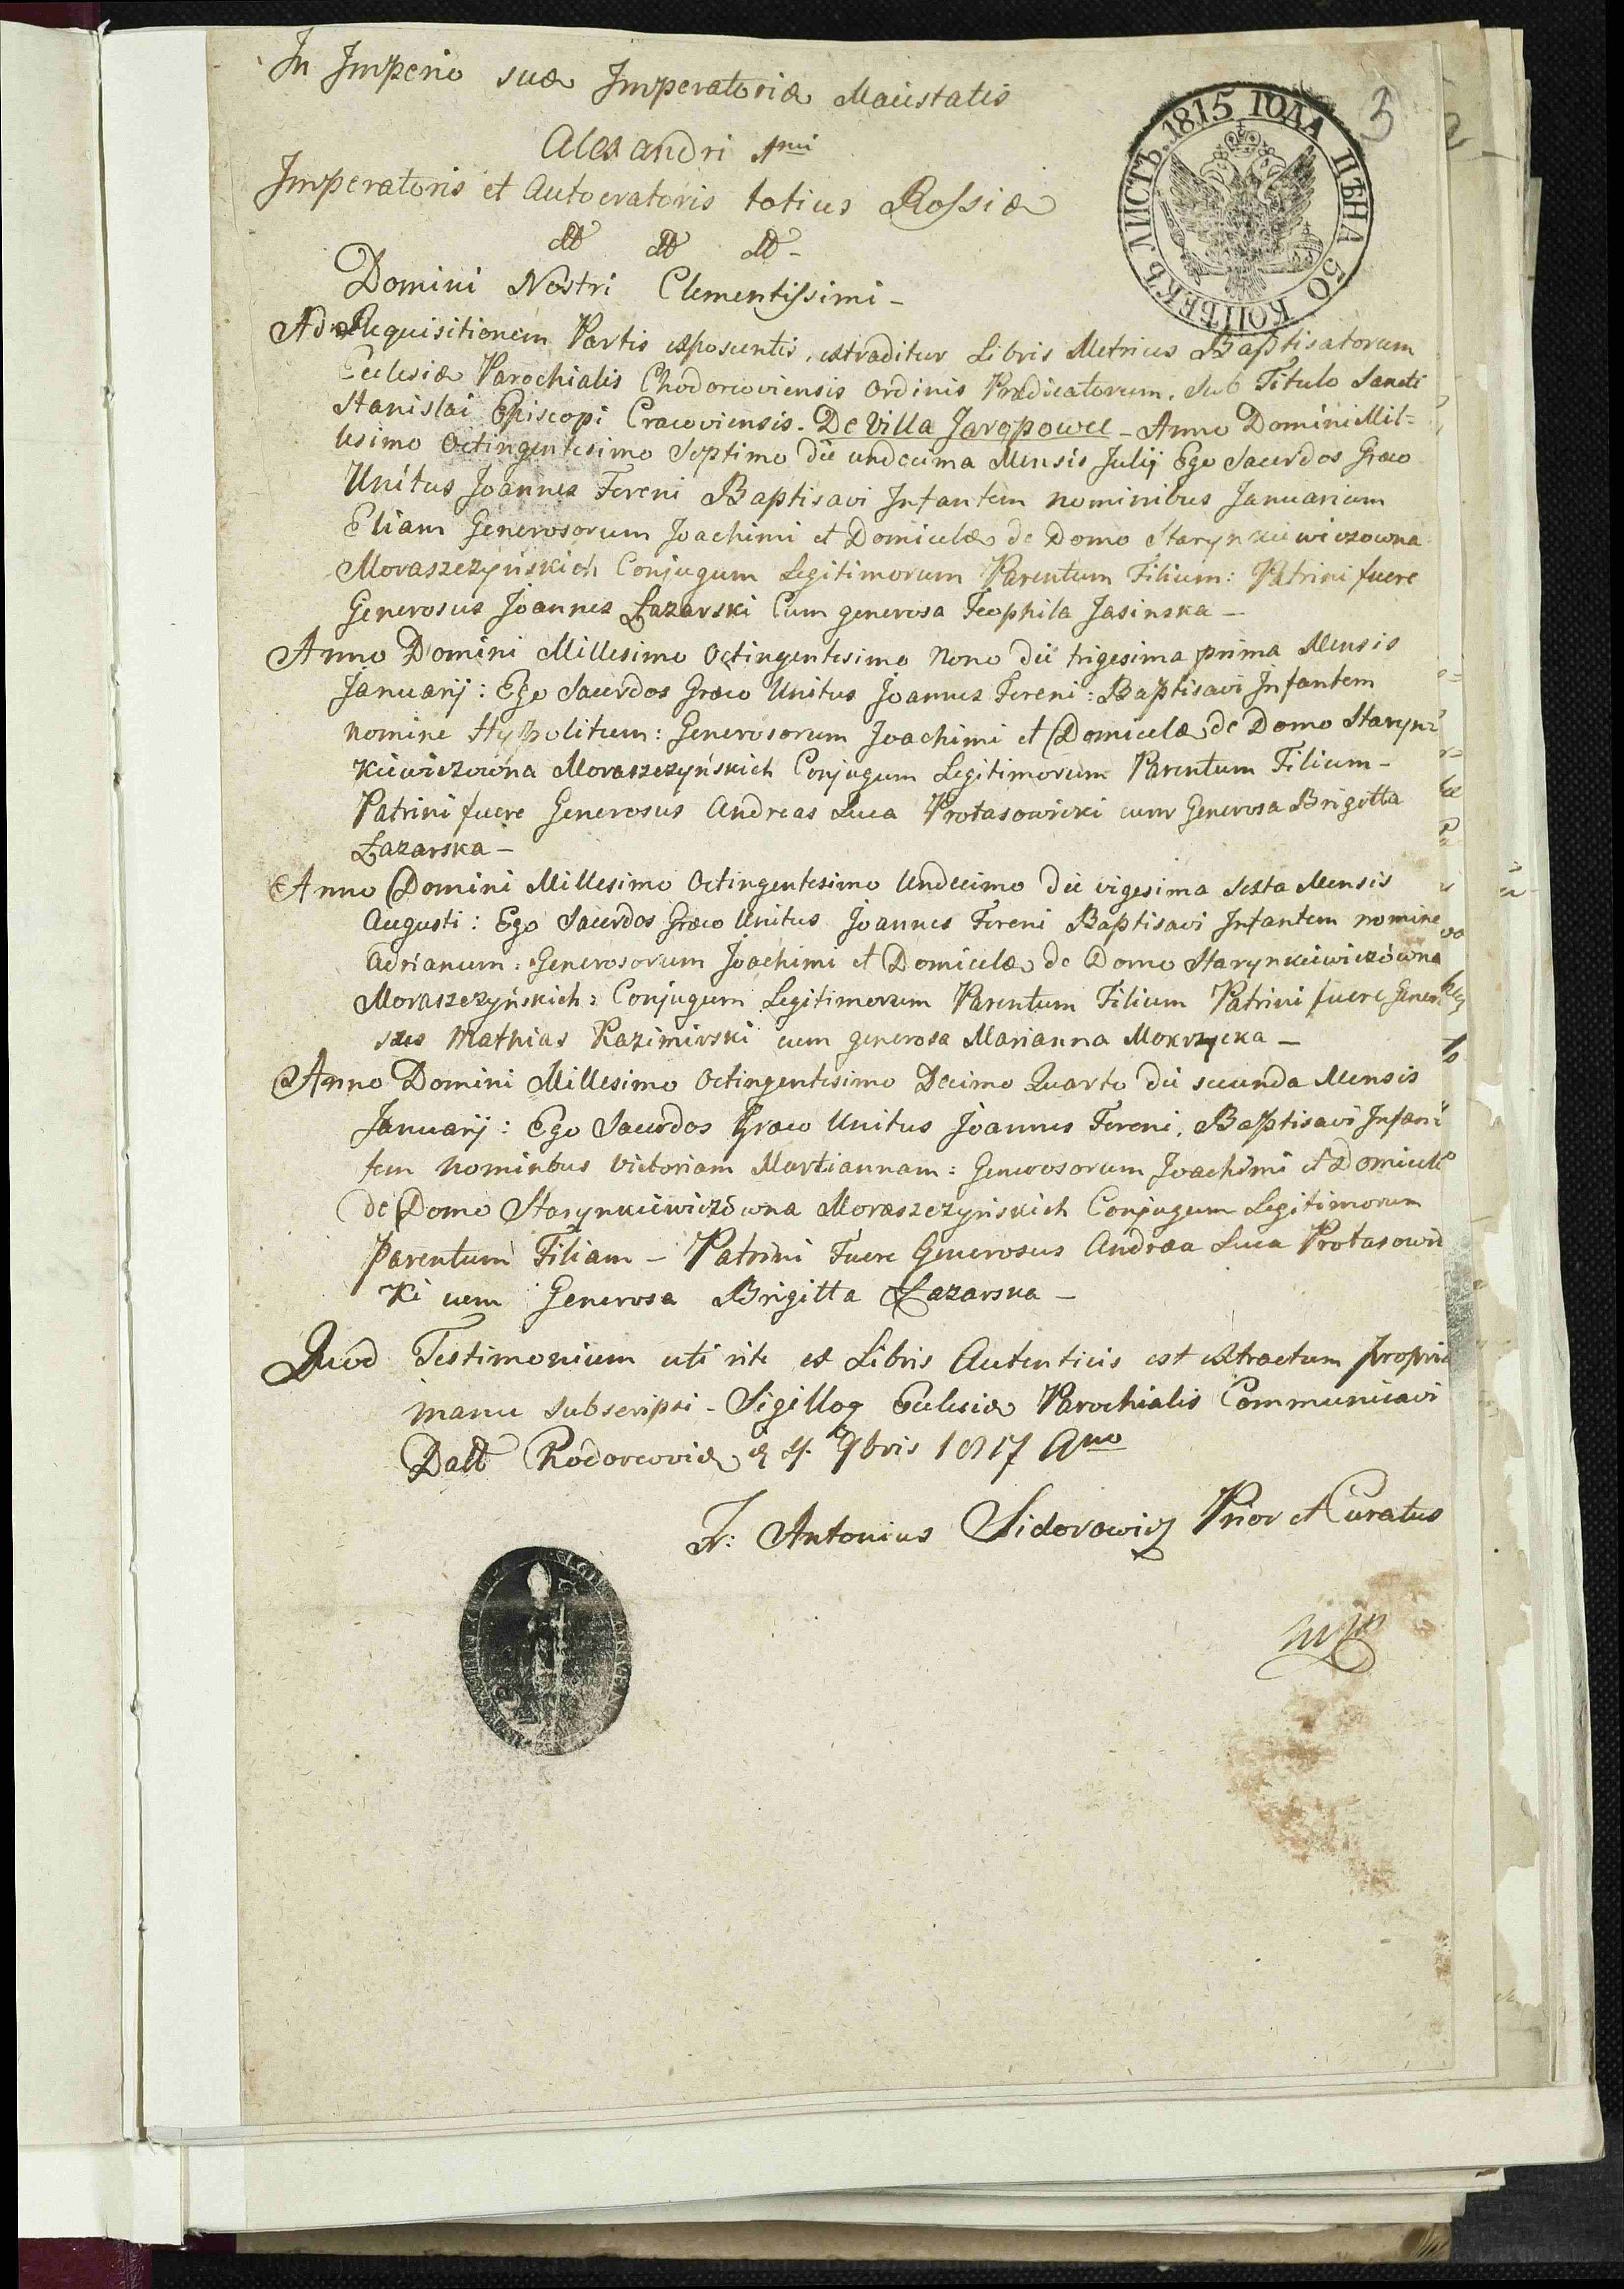 In Imperio suæ Imperatoriæ Maiestatis
Alexandri 1mi
Imperatoris et Autocratoris totius Rossiæ
Domini Nostri Clementissimi -
1815 ГОДА ЦѢНА 50 КОПѢЕКЪ ЛИСТЪ.
Ad Requisitionem Partis exposcentis, extraditur Libris Metrices Baptisatorum
Ecclesiæ Parochialis Chodorcoviensis Ordinis Prædicatorum, Sub Titulo Sancti
Stanislai Episcopi Cracoviensis. De Villa Jaropowce - Anno Domini Mil=
lesimo Octingentesimo Septimo die undecima Mensis Julij Ego Sacerdos Græco
Unitus Joannes Fereni Baptisavi Infantem nominibus Januarium
Eliam Generosorum Joachimi et Domicelæ de Domo Starynkiewiczowna
Moraszczyńskich Conjugum Legitimorum Parentum Filium: Patrini fuere
Generosus Joannes Łazarski Cum generosa Teophila Jasinska -
Anno Domini Millesimo Octingentesimo Nono die trigesima prima Mensis
Januarij: Ego Sacerdos Græco Unitus Joannes Fereni: Baptisavi Infantem
nomine Hyppolitum: Generosorum Joachimi et Domicelæ de Domo Staryn=
kiewiczowna Moraszczyńskich Conjugum Legitimorum Parentum Filium -
Patrini fuere Generosus Andreas Luca Protasowicki cum Generosa Brigitta
Łazarska -
Anno Domini Millesimo Octingentesimo Undecimo die vigesima Sexta Mensis
Augusti: Ego Sacerdos Græco Unitus Joannes Fereni Baptisavi Infantem nomine
Adrianum: Generosorum Joachimi et Domicelæ de Domo Starynkiewiczówna
Moraszczyńskich: Conjugum Legitimorum Parentum Filium Patrini fuere Genero
sus Mathias Kazimirski cum generosa Marianna Mokrzycka -
Anno Domini Millesimo Octingentesimo Decimo Quarto die secunda Mensis
Januarij: Ego Sacerdos Græco Unitus Joannes Fereni, Baptisavi Infan=
tem Nominbus Victoriam Martiannam: Generosorum Joachimi et Domicelæ
de Domo Starynkiewiczówna Moraszczyńskich Conjugum Legitimorum
parentum Filiam - Patrini Fuere Generosus Andræa Luca Protasowic
ki cum Generosa Brigitta Łazarska -
Quod Testimonium uti rite ex Libris Autenticis est extractum propria
manu subscripsi - Sigilloq Ecclesiæ Parochialis Communicavi
Datt Chodorcoviæ 4 9bris 1817 Ano
Fr: Antonius Sidorowicz Prior et Curatus
mpp